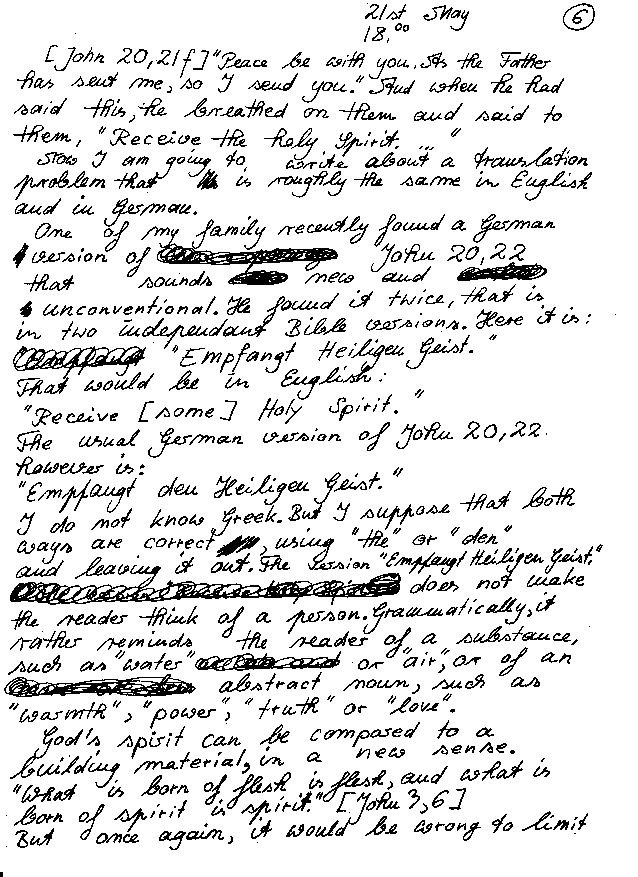 21st May
18.00
6
[John 20,21f] "Peace be with you. As the Father
has sent me, so I send you." And when he had
said this, he breathed on them and said to
them, "Receive the holy Spirit. ... "
Now I am going to write about a translation
problem that is roughly the same in English
and in German.
One of my family recently found a German
version of John 20,22
that sounds new and
unconventional. He found it twice, that is
in two independant Bible versions. Here it is:
"Empfangt Heiligen Geist."
That would be in English:
"Receive [some] Holy Spirit."
The usual German version of John 20,22.
however is:
"Empfangt den Heiligen Geist."
I do not know Greek. But I suppose that both
ways are correct, using "the" or "den"
and leaving it out. The version "Empfangt Heiligen Geist."
does not make
the reader think of a person. Grammatically, it
rather reminds the reader of a substance,
such as "water" or "air", or of an
abstract noun, such as
"warmth", "power", "truth" or "love".
God's spirit can be composed to a
building material, in a new sense.
"What is born of flesh is flesh, and what is
born of spirit is spirit." [John 3,6]
But once again, it would be wrong to limit